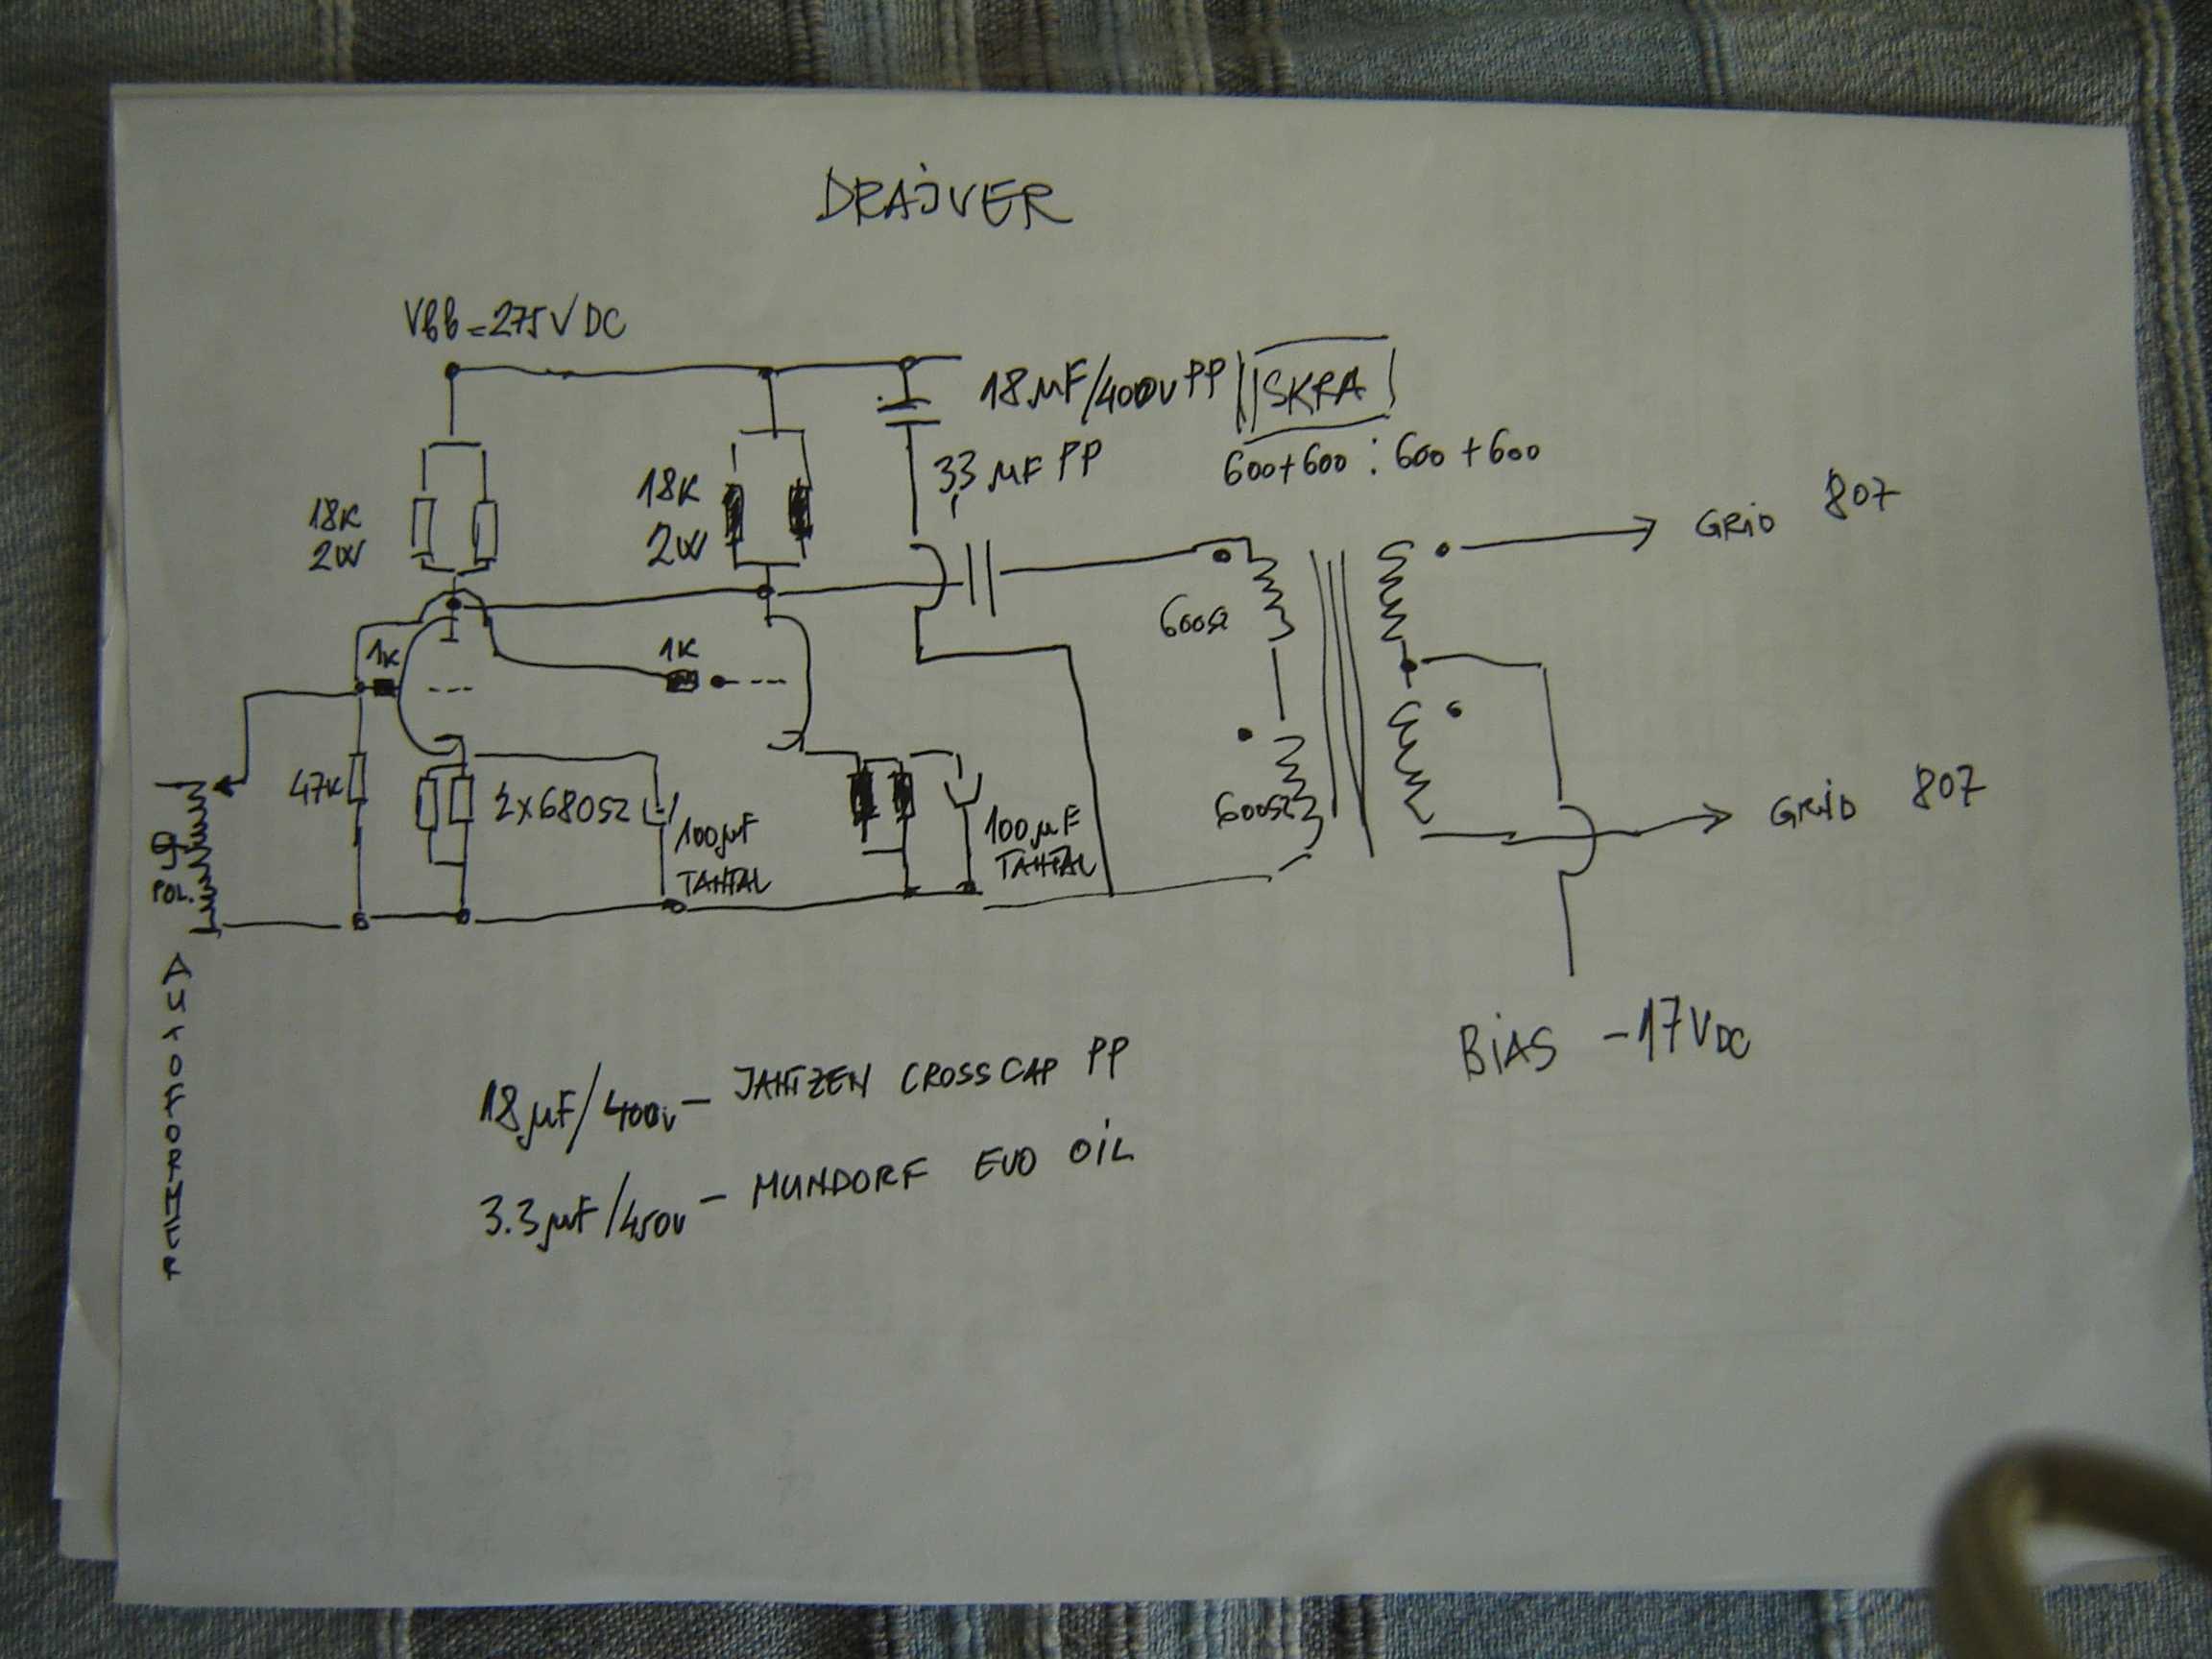 DRAJVER
Vbb=275V DC
18µF/400V PP
ISKRA
3,3 µF PP
600+600 : 600+600
18K
2W
18K
2W
GRID 807
1K
1K
600Ω
47K
2x680Ω
100µF
TANTAL
100µF
TANTAL
600Ω
GRID 807
POL.
AUTOFORMER
BIAS -17VDC
18µF/400V - JANTZEN CROSSCAP PP
3.3µF/450V - MUNDORF EVO OIL